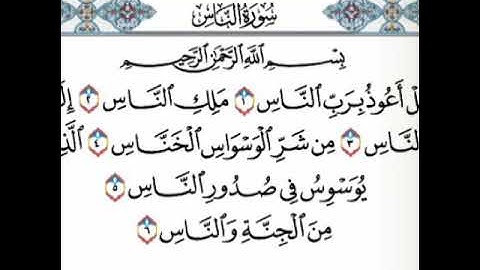 سُورَةُ النَّاسِ
بِسْمِ اللَّهِ الرَّحْمَٰنِ الرَّحِيمِ
أَعُوذُ بِرَبِّ النَّاسِ ١ مَلِكِ النَّاسِ ٢
النَّاسِ ٣ مِن شَرِّ الْوَسْوَاسِ الْخَنَّاسِ ٤
يُوَسْوِسُ فِي صُدُورِ النَّاسِ ٥
مِنَ الْجِنَّةِ وَالنَّاسِ ٦